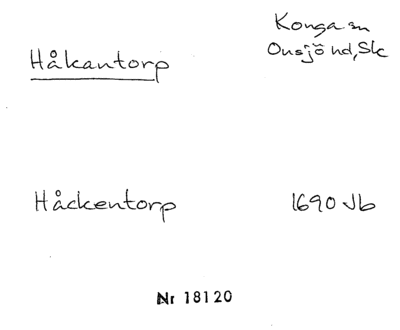 Håkantorp
Konga sn
Onsjö hd, Sk
Håckentorp
1690 Jb
Nr 18120